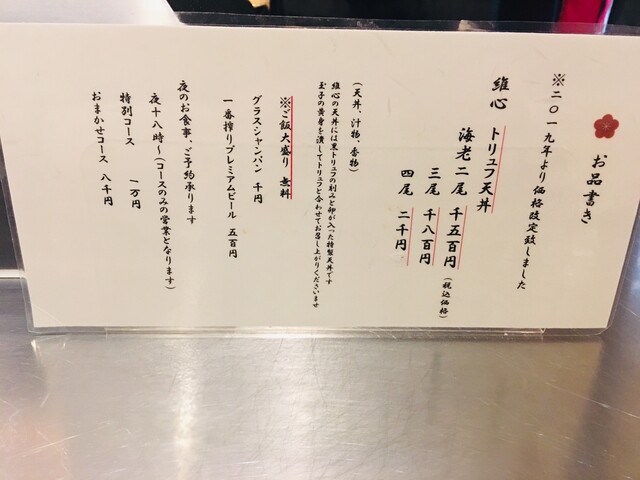 お品書き
※二〇一九年より価格改定致しました
維心 トリュフ天丼
海老 二尾 千五百円(税込価格)
三尾 千八百円
四尾 二千円
(天丼、汁物、香物)
維心の天丼には黒トリュフの刻みと卵が入った特製天丼です
玉子の黄身を潰してトリュフと合わせてお召し上がりくださいませ
※ご飯大盛り 無料
グラスシャンパン 千円
一番搾りプレミアムビール 五百円
夜のお食事、ご予約承ります
夜十八時～(コースのみの営業となります)
特別コース 一万円
おまかせコース 八千円